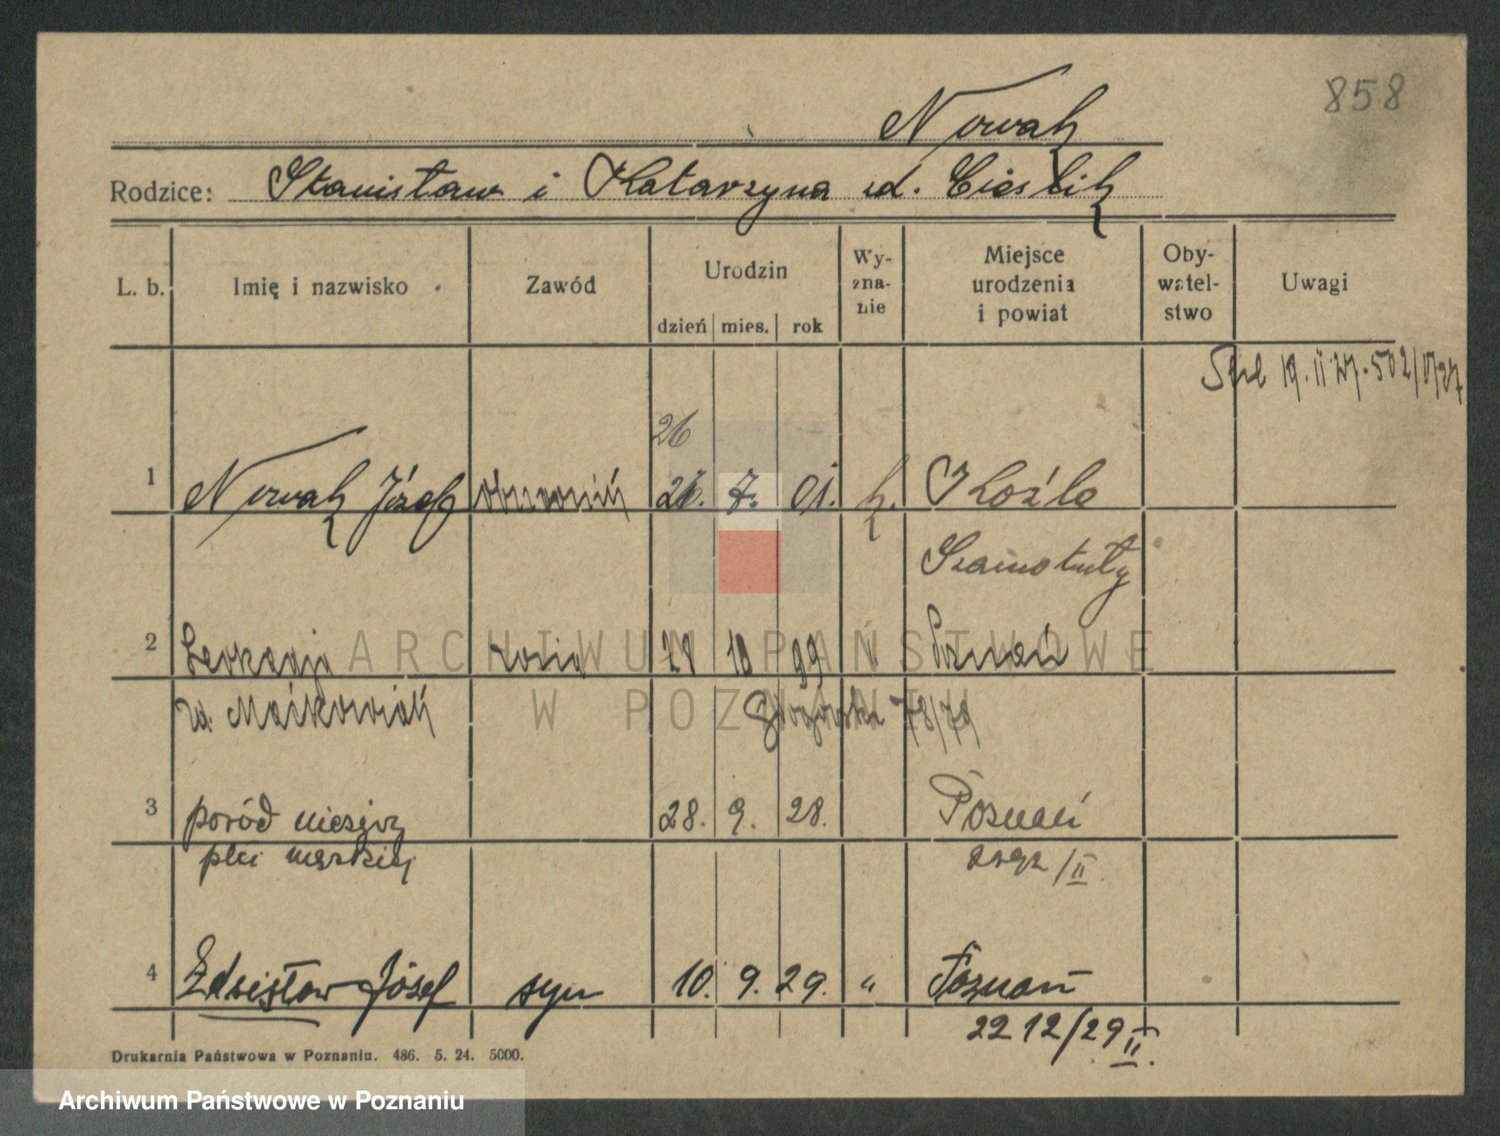 858
Nowak
Rodzice: Stanisław i Katarzyna zd. Cieślik
L. b. Imię i nazwisko Zawód Urodzin Wy- Miejsce Oby- Uwagi
zna- urodzenia watel-
dzień mies. rok nie i powiat stwo
19. II 27. 502/
26
1 Nowak Józef 26. 7. 01. k. Koźle
Szamotuły
2 Leokadja żona 10 99 " Poznań
zd. Maćkowiak 78/79
3 poród nieżywy 28. 9. 28. Poznań
płci męskiej /II.
4 Zdzisław Józef syn 10. 9. 29. " Poznań
2212/29 II.
Drukarnia Państwowa w Poznaniu. 486. 5. 24. 5000.
ARCHIWUM PAŃSTWOWE
W POZNANIU
Archiwum Państwowe w Poznaniu